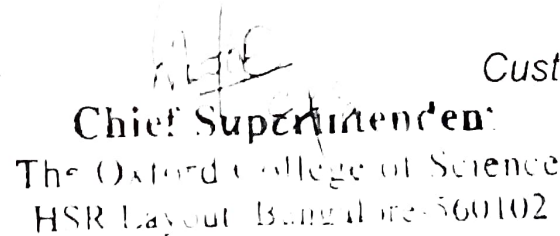 Cust
Chief Superintendent
The Oxford College of Science
HSR Layout Bangalore-560102